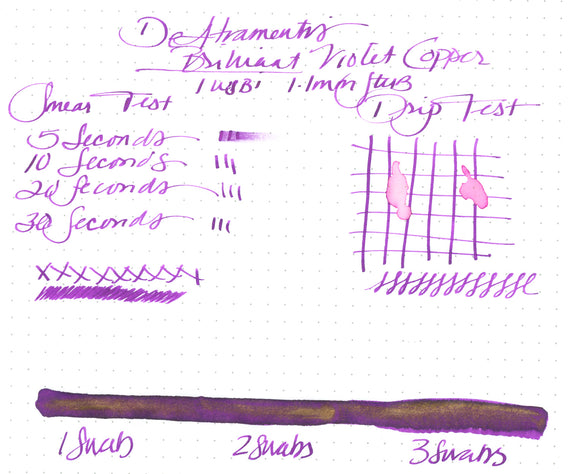 De Atramentis
Brilliant Violet Copper
1.1mm stub
Smear Test
Drip Test
5 Seconds
10 Seconds
20 Seconds
30 Seconds
XXXXXXXXX
1 Swab
2 Swabs
3 Swabs